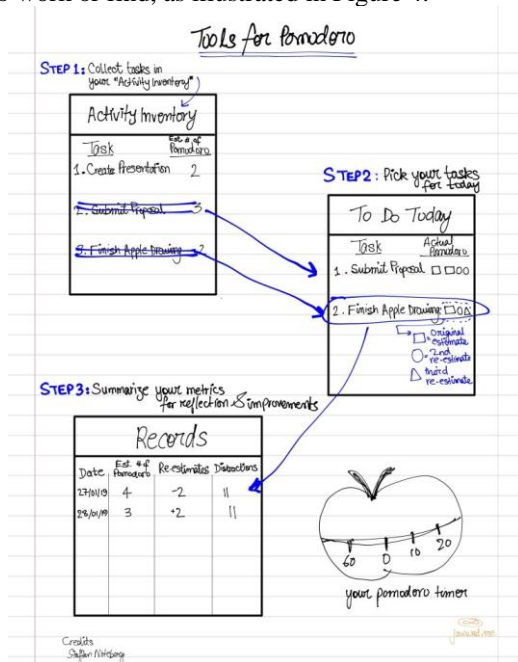 as illustrated in Figure 4.
Tools for Pomodoro
STEP 1: Collect tasks in
your "Activity Inventory"
Activity Inventory
Task
Est # of
Pomodoro
1. Create Presentation 2
2. Submit Proposal 3
3. Finish Apple Drawing 2
STEP2: Pick your tasks
for today
To Do Today
Task
Actual
Pomodoro
1. Submit Proposal
2. Finish Apple Drawing
original
estimate
2nd
re-estimate
third
re-estimate
STEP3: Summarize your metrics
for reflection & improvements
Records
Date
Est. # of
Pomodoro
Re-estimates
Distractions
27/01/19 4 -2 ||
28/01/19 3 +2 ||
60 0 10 20
your pomodoro timer
Credits
Staffan Nöteberg